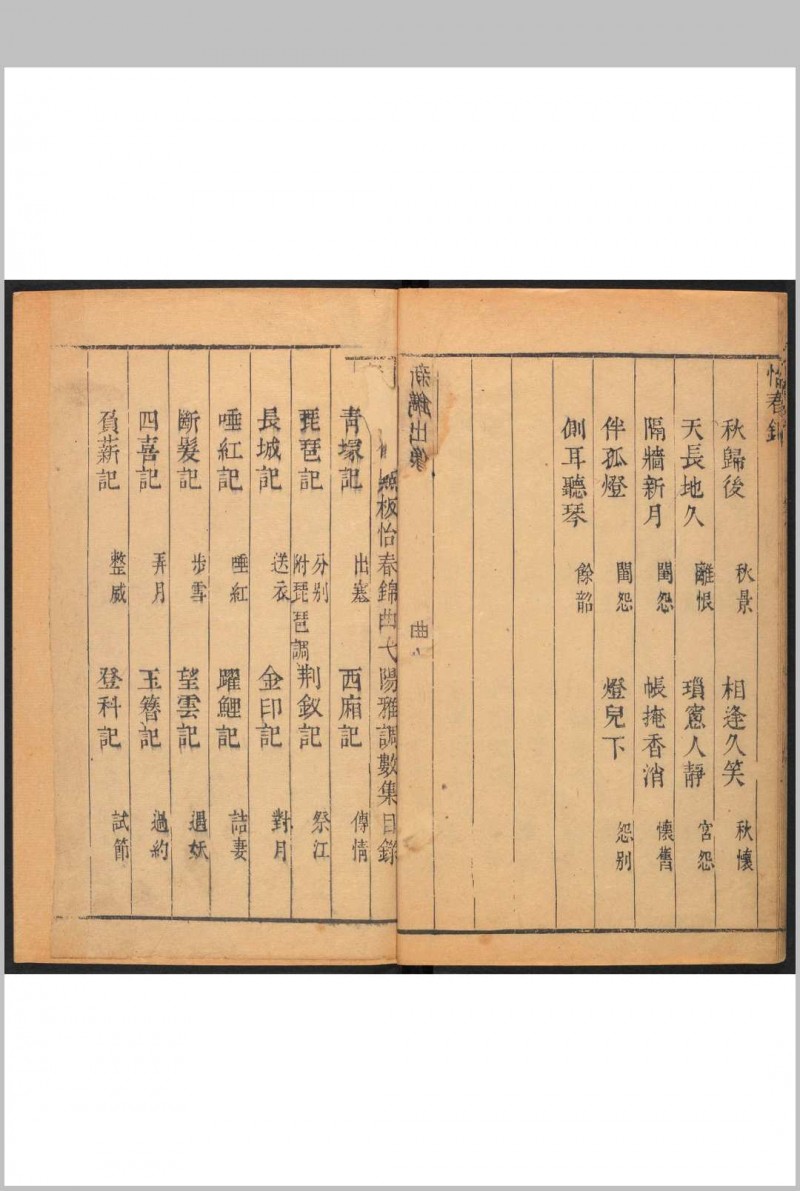 怡春錦
秋歸後 秋景 相逢久笑 秋懷
天長地久 離恨 瑣窻人靜 宮怨
隔牆新月 閨怨 帳掩香消 懷舊
伴孤燈 閨怨 燈兒下 怨别
側耳聽琴 餘韶
新鐫出像
曲
板怡春錦曲弋陽雅調數集目錄
青塚記 出塞 西廂記 傳情
琵琶記 分别 附琵琶調 荆釵記 祭江
長城記 送衣 金印記 對月
唾紅記 唾紅 躍鯉記 詰妻
斷髮記 步雪 望雲記 遇妖
四喜記 弄月 玉簪記 過約
負薪記 整威 登科記 試節